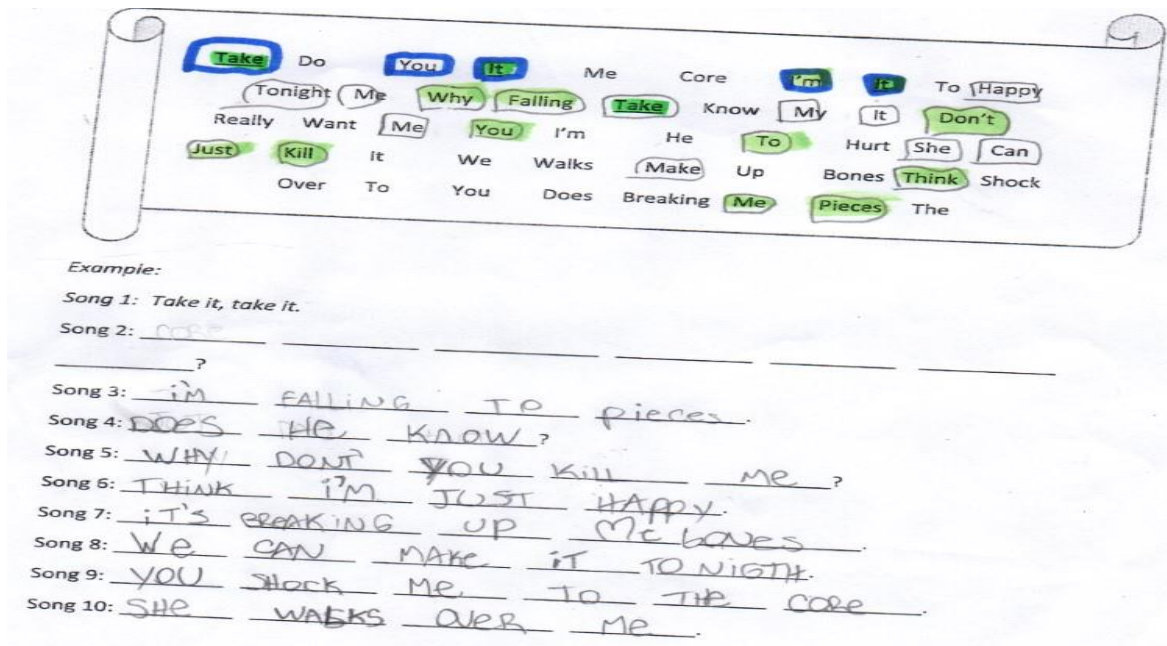 Take Do You It Me Core I'm It To Happy
Tonight Me Why Falling Take Know My It Don't
Really Want Me You I'm He To Hurt She Can
Just Kill It We Walks Make Up Bones Think Shock
Over To You Does Breaking Me Pieces The
Example:
Song 1: Take it, take it.
Song 2:
?
Song 3: i'm FALLiNG TO pieces.
Song 4: DOES He KNOW?
Song 5: WHY DONT YOU Kill Me?
Song 6: THiNK i'M JUST HAppy.
Song 7: iT'S BREAKiNG UP Me boNes.
Song 8: We CAN MAKe iT TO NIGTH.
Song 9: YOU SHock Me TO THe CORe.
Song 10: SHe WALKS OVeR Me.